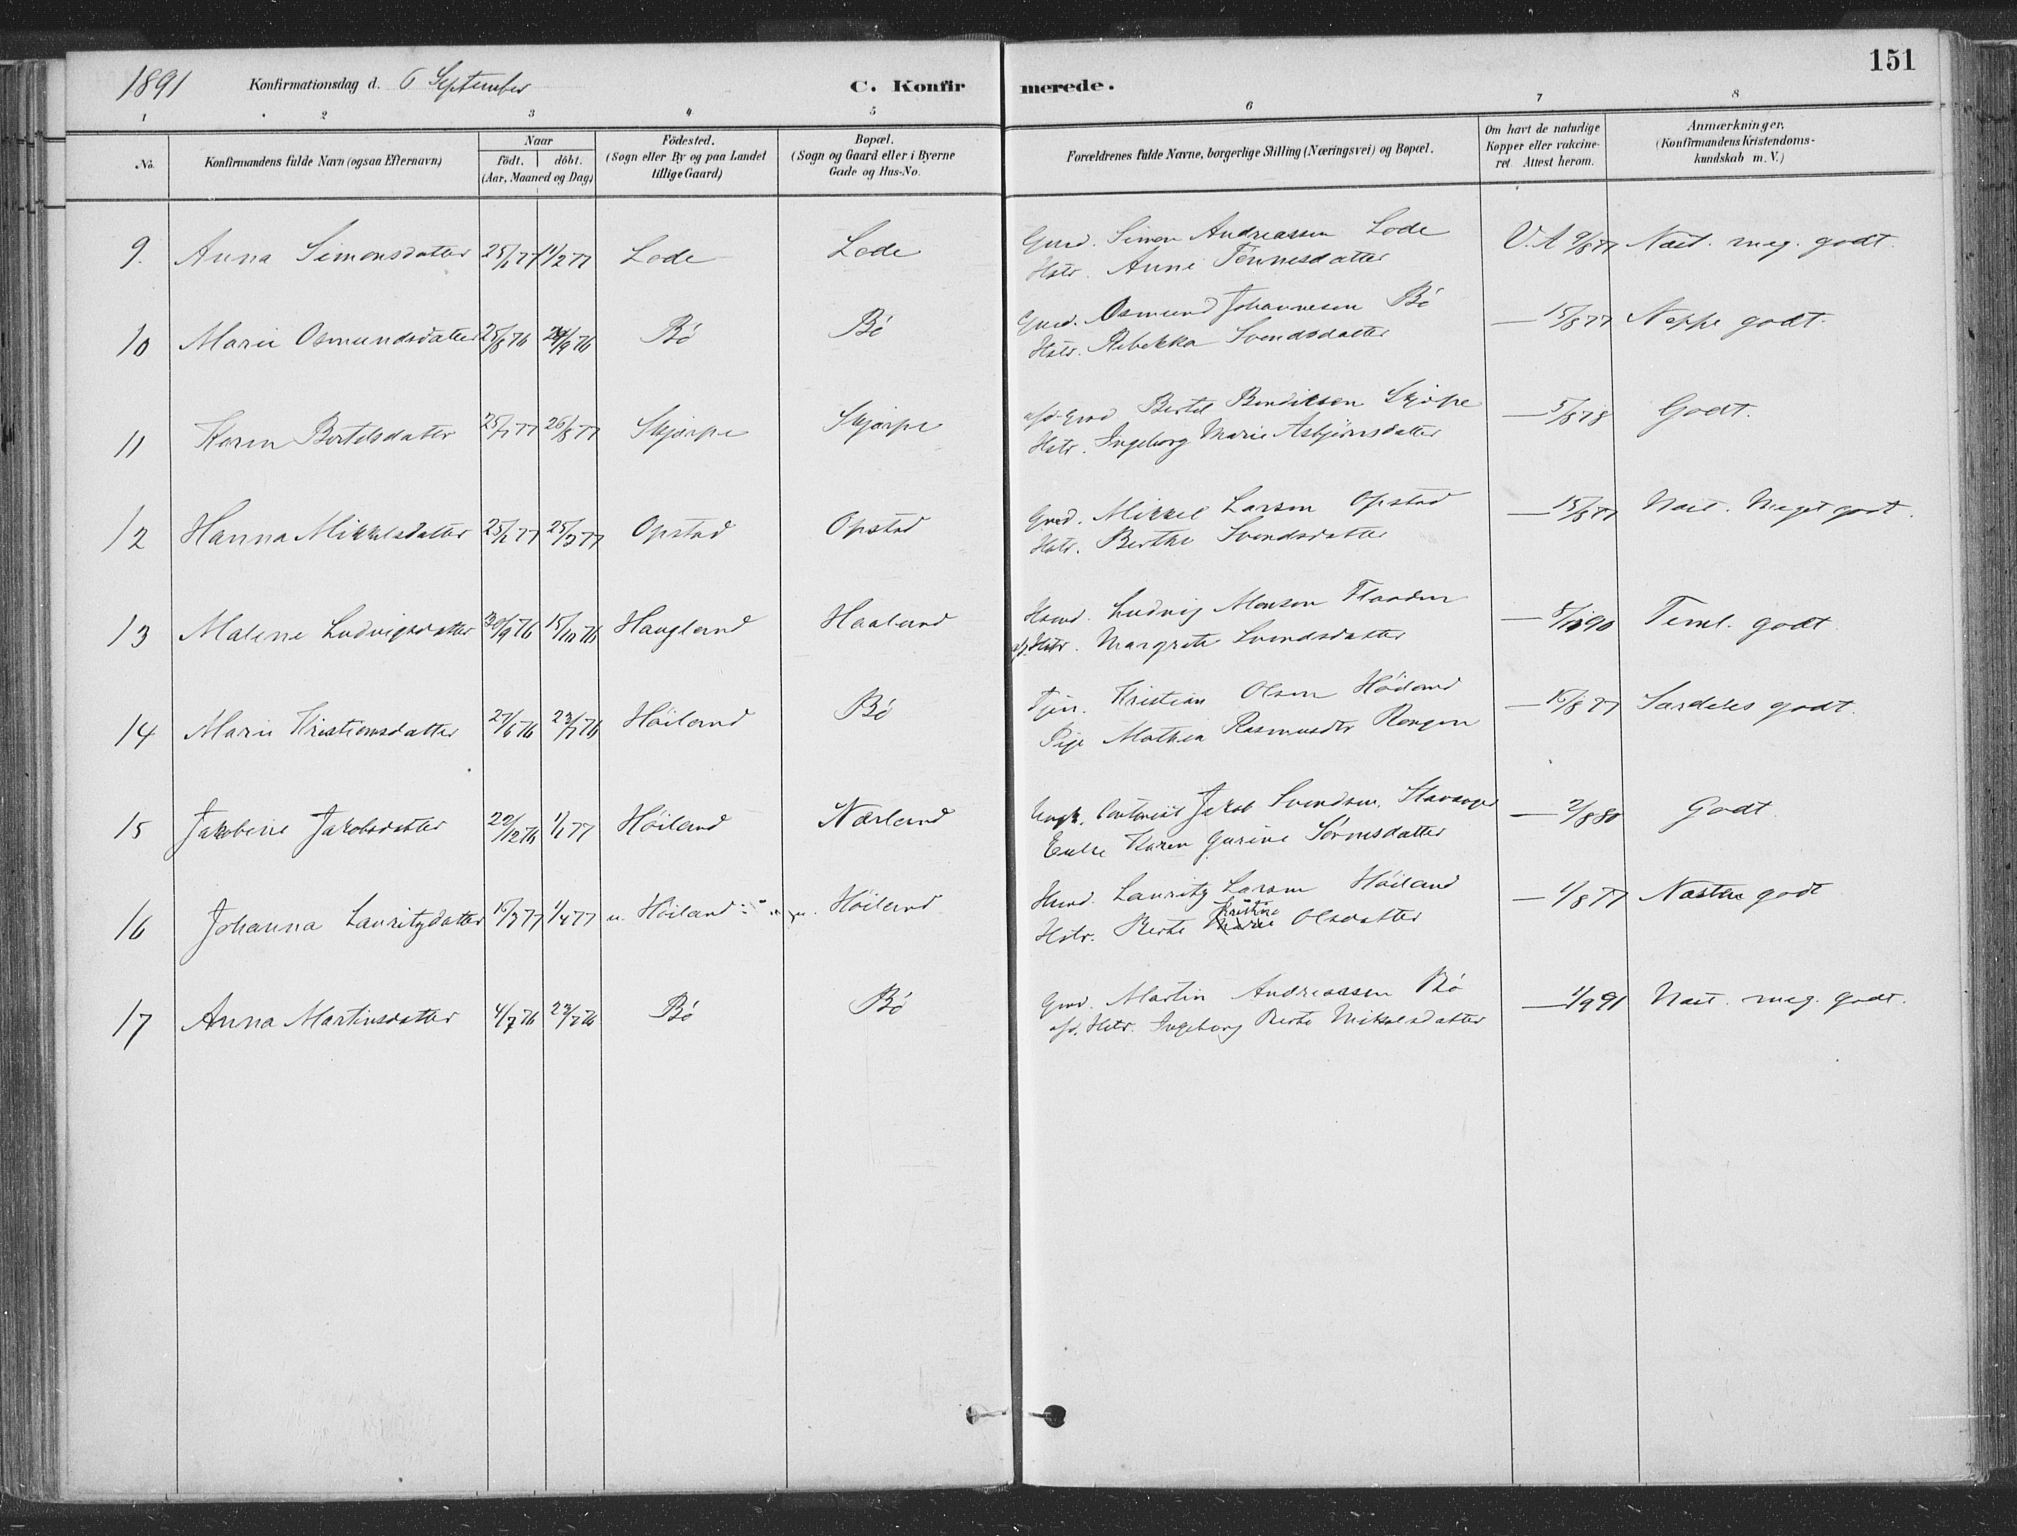 1891 Konfirmationsdag d. 6 September C. Konfirmerede. 151
1 2 3 4 5 6 7 8
No. Konfirmandens fulde Navn (ogsaa Efternavn) Naar födt. döbt. (Aar, Maaned og Dag) Födested. (Sogn eller By og paa Landet tillige Gaard) Bopæl. (Sogn og Gaard eller i Byerne Gade og Hus-No. Forældrenes fulde Navne, borgerlige Stilling (Næringsvei) og Bopæl. Om havt de naturlige Kopper eller vakcineret Attest herom. Anmærkninger. (Konfirmandens Kristendomskundskab m. V.)
9. Anna Simonsdatter 25/1 77 11/2 77 Lode Lode Gmd. Simon Andreassen Lode V. A 9/8 77 Næst. meg. godt.
Hstr. Anne Tönnesdatter
10 Marie Osmundsdatter 25/8 76 24/9 76 Bö Bö Gmd. Osmund Johannesen Bö — 15/8 77 Neppe godt.
Hstr. Rebekka Svendsdatter
11 Karen Bertelsdatter 25/7 77 26/8 77 Skjærpe Skjærpe afd. Gmd Bertel Bendiksen Skjærpe — 5/8 78 Godt.
Hstr. Ingeborg Marie Asbjörnsdatter
12 Hanna Mikkelsdatter 25/1 77 25/2 77 Opstad Opstad Gmd. Mikkel Larsen Opstad — 15/8 77 Næst. Meget godt.
Hstr. Berthe Svendsdatter
13 Malene Ludvigsdatter 30/9 76 15/10 76 Haugland Haaland Hsmd. Ludvig Monsen — 8/10 90 Teml. godt
afd. Hstr. Margrete Svendsdatter
14 Marie Kristiansdatter 27/6 76 23/7 76 Höiland Bö Tjen. Kristian Olsen Höiland — 15/8 77 Særdeles godt.
Pige Mathea Rasmusdtr
15 Jakobine Jakobsdatter 22/12 76 1/1 77 Höiland Nærland Ungk. Jakob Svendsen, Stavanger — 2/8 80 Godt.
Enke Karen Gurine
16 Johanna Lauritzdatter 15/3 77 1/4 77 n. Höiland n. Höiland Hsmd. Lauritz Larsen Höiland — 1/8 77 Næsten godt
Hstr. Berte Kristine Olsdatter
17 Anna Martinsdatter 4/7 76 23/7 76 Bö Bö Gmd. Martin Andreassen Bö — 1/9 91 Næst. meg. godt.
afd. Hstr. Ingeborg Berte Mikkelsdatter